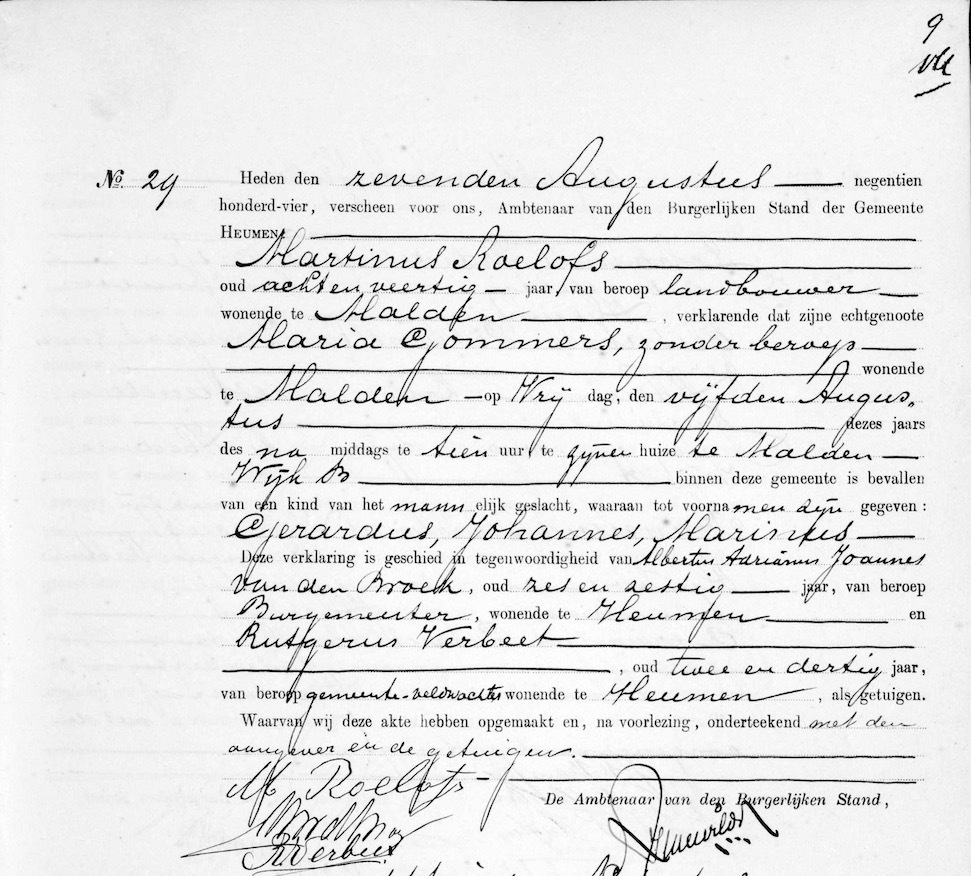 9
No. 29 Heden den zevenden Augustus negentien
honderd-vier, verscheen voor ons, Ambtenaar van den Burgerlijken Stand der Gemeente
HEUMEN
Martinus Roelofs
oud acht en veertig jaar, van beroep landbouwer
wonende te Malden, verklarende dat zijne echtgenoote
Maria Gommers, zonder beroep
wonende
te Malden op Vrij dag, den vijfden Augus„
tus dezes jaars
des na middags te tien uur, te zijnen huize te Malden
Wijk B binnen deze gemeente is bevallen
van een kind van het mann elijk geslacht, waaraan tot voorna men zijn gegeven:
Gerardus, Johannes, Marinus
Deze verklaring is geschied in tegenwoordigheid van Albertus Adrianus Joannes
van den Broek, oud zes en zestig jaar, van beroep
Burgemeester, wonende te Heumen en
Rutgerus Verbeet
, oud twee en dertig jaar,
van beroep gemeente-veldwachter wonende te Heumen, als getuigen.
Waarvan wij deze akte hebben opgemaakt en, na voorlezing, onderteekend met den
aangever en de getuigen
M Roelofs
De Ambtenaar van den Burgerlijken Stand,
R Verbeet